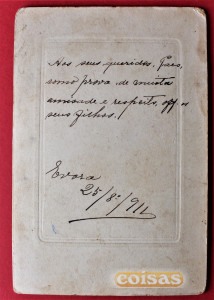 Aos seus queridos Paes,
como prova de muita
amisade e respeito, off. o
seus filhos.
Evora
25/8º/911
coisas